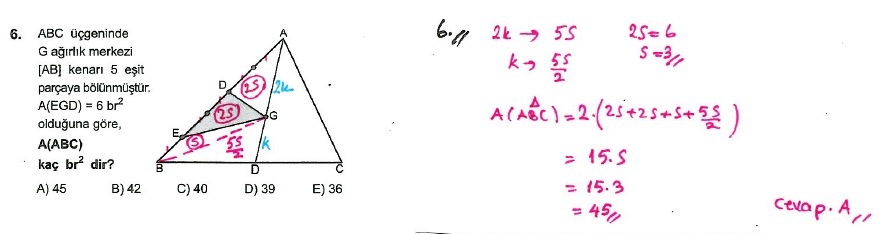 6. ABC üçgeninde
G ağırlık merkezi
[AB] kenarı 5 eşit
parçaya bölünmüştür.
A(EGD) = 6 br²
olduğuna göre,
A(ABC)
kaç br² dir?
A) 45 B) 42 C) 40 D) 39 E) 36
A
D
2S
2k
2S
G
E
S
5S/2
k
B
D
C
6.//
2k → 5S
k → 5S/2
2S=6
S=3//
A(ABC)=2.(2S+2S+S+5S/2)
= 15.S
= 15.3
= 45//
Cevap. A//